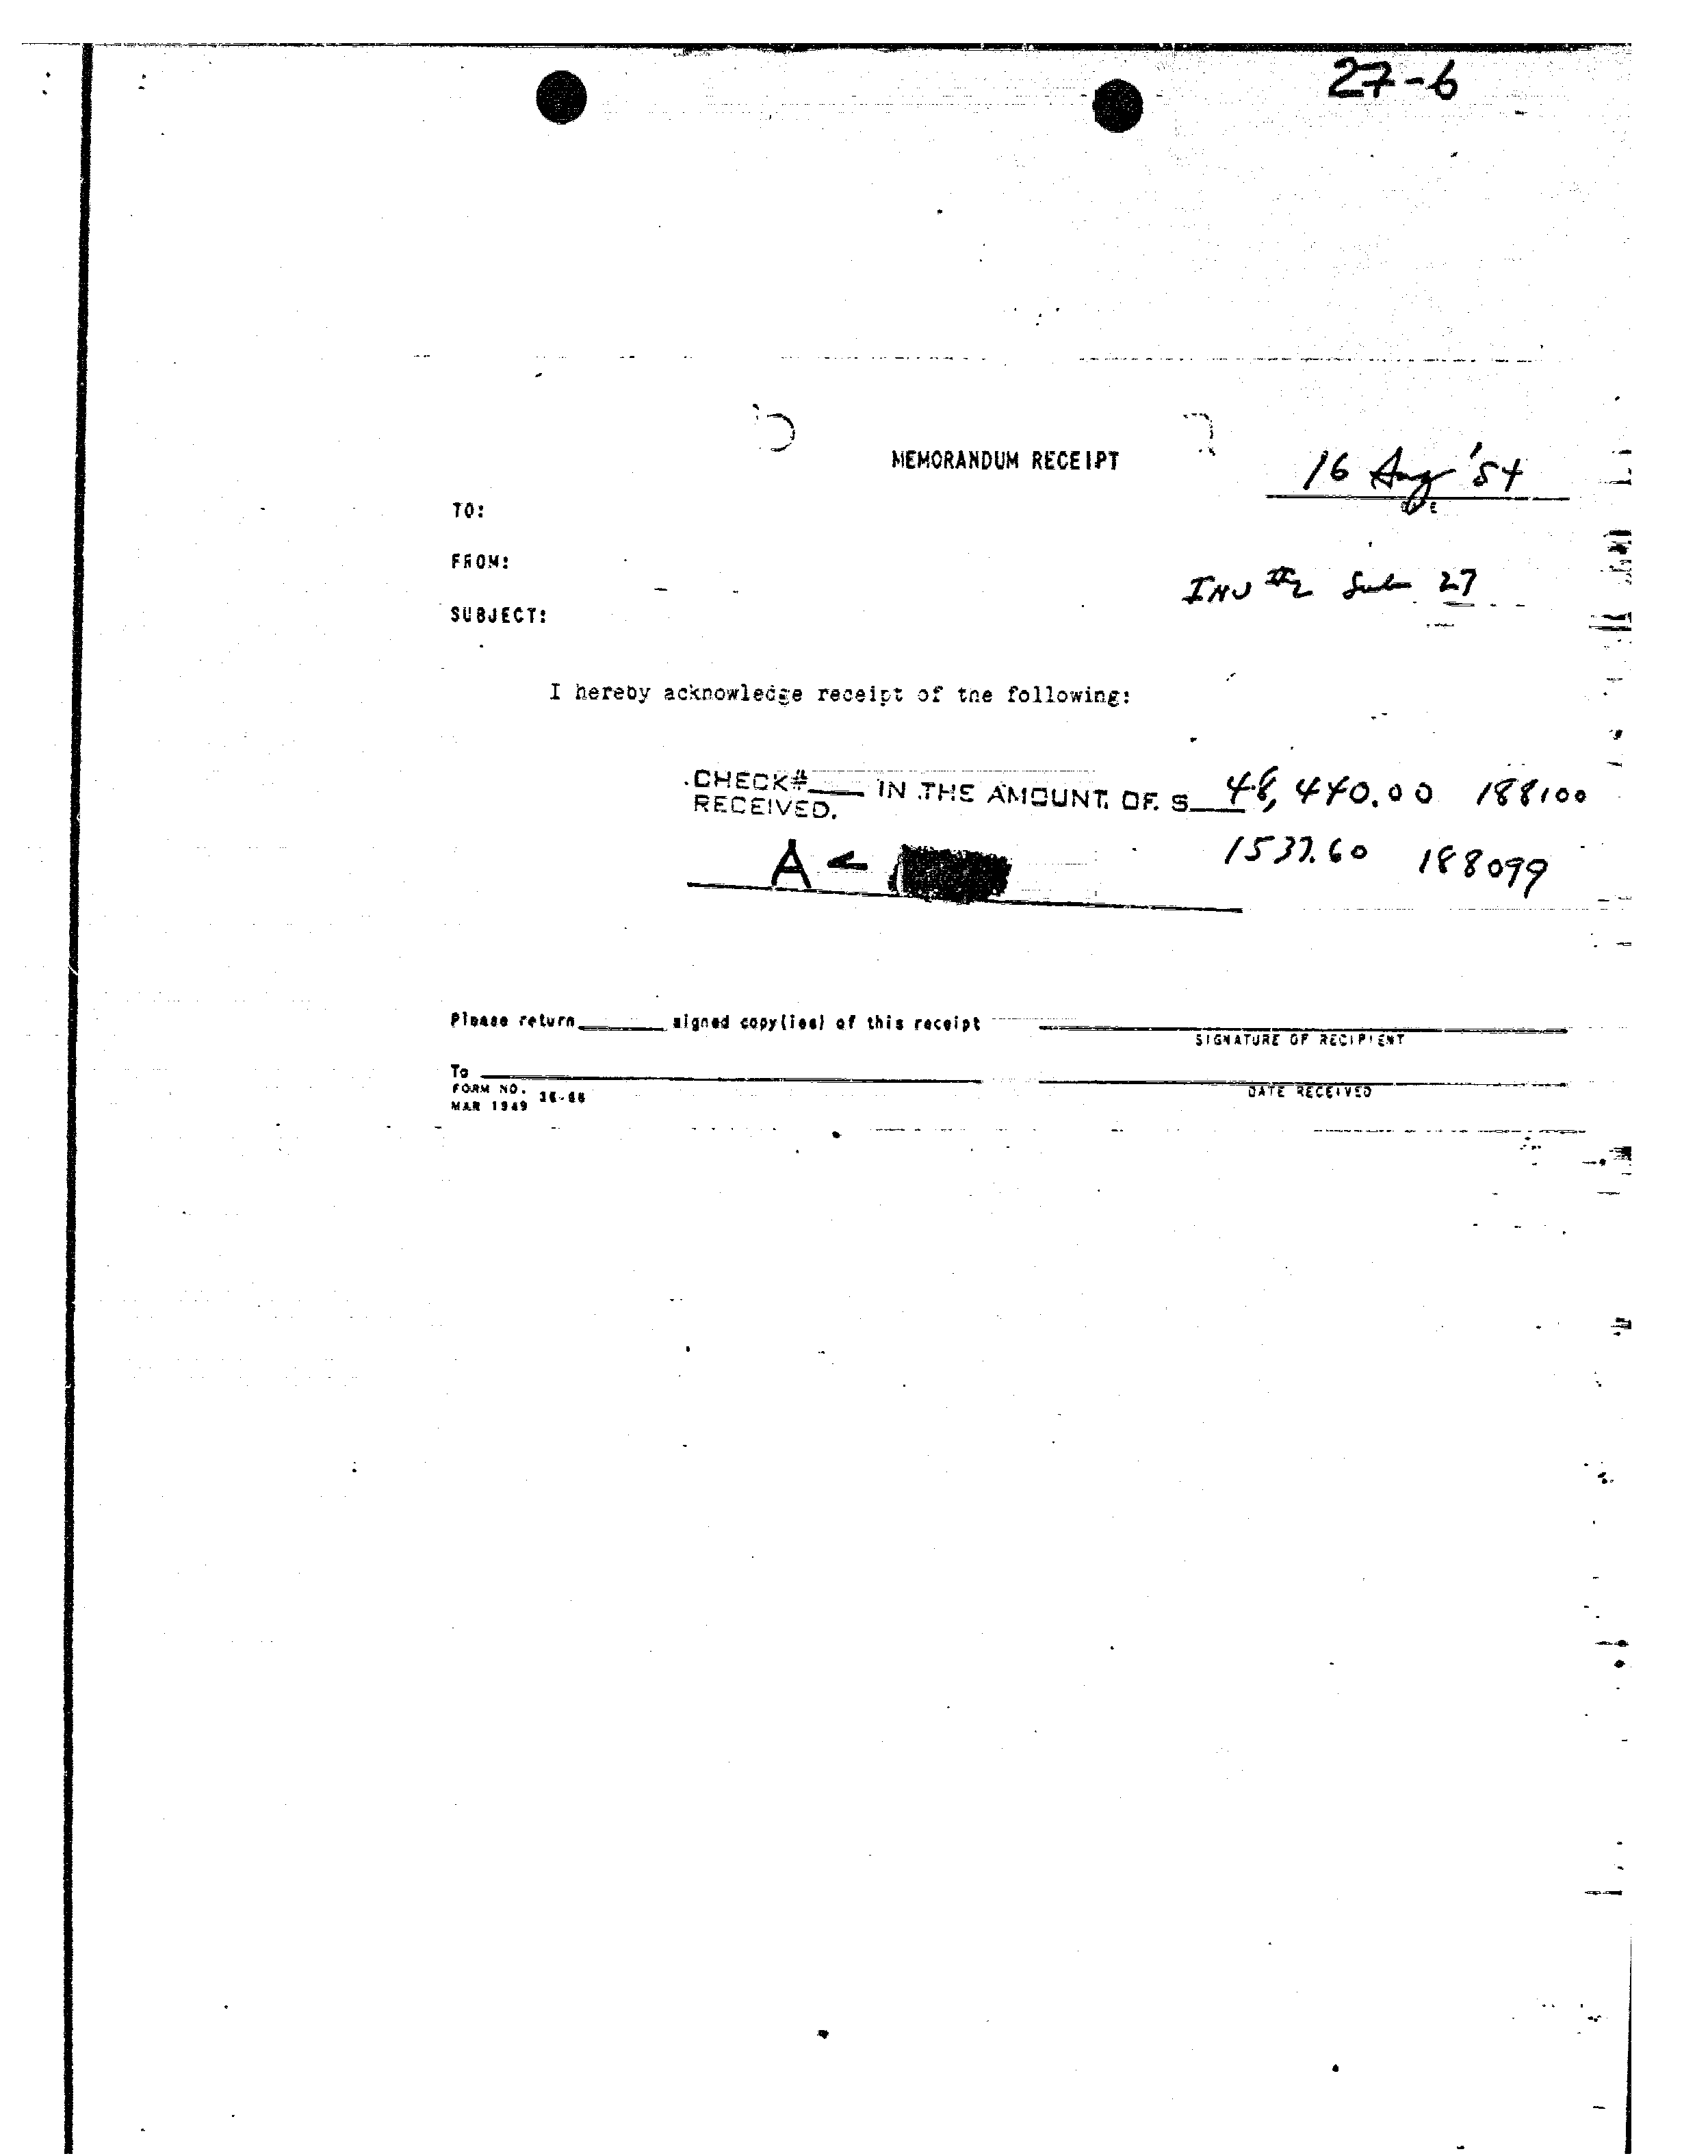 27-6
MEMORANDUM RECEIPT
16 Aug '54
TO:
FROM:
INV #2 Sub 27
SUBJECT:
I hereby acknowledge receipt of the following:
CHECK#____ IN THE AMOUNT OF $____ 48,440.00 188100
RECEIVED.
A - 1537.60 188099
Please return ________ signed copy(ies) of this receipt
SIGNATURE OF RECIPIENT
To
DATE RECEIVED
FORM NO. 36-66
MAR 1949